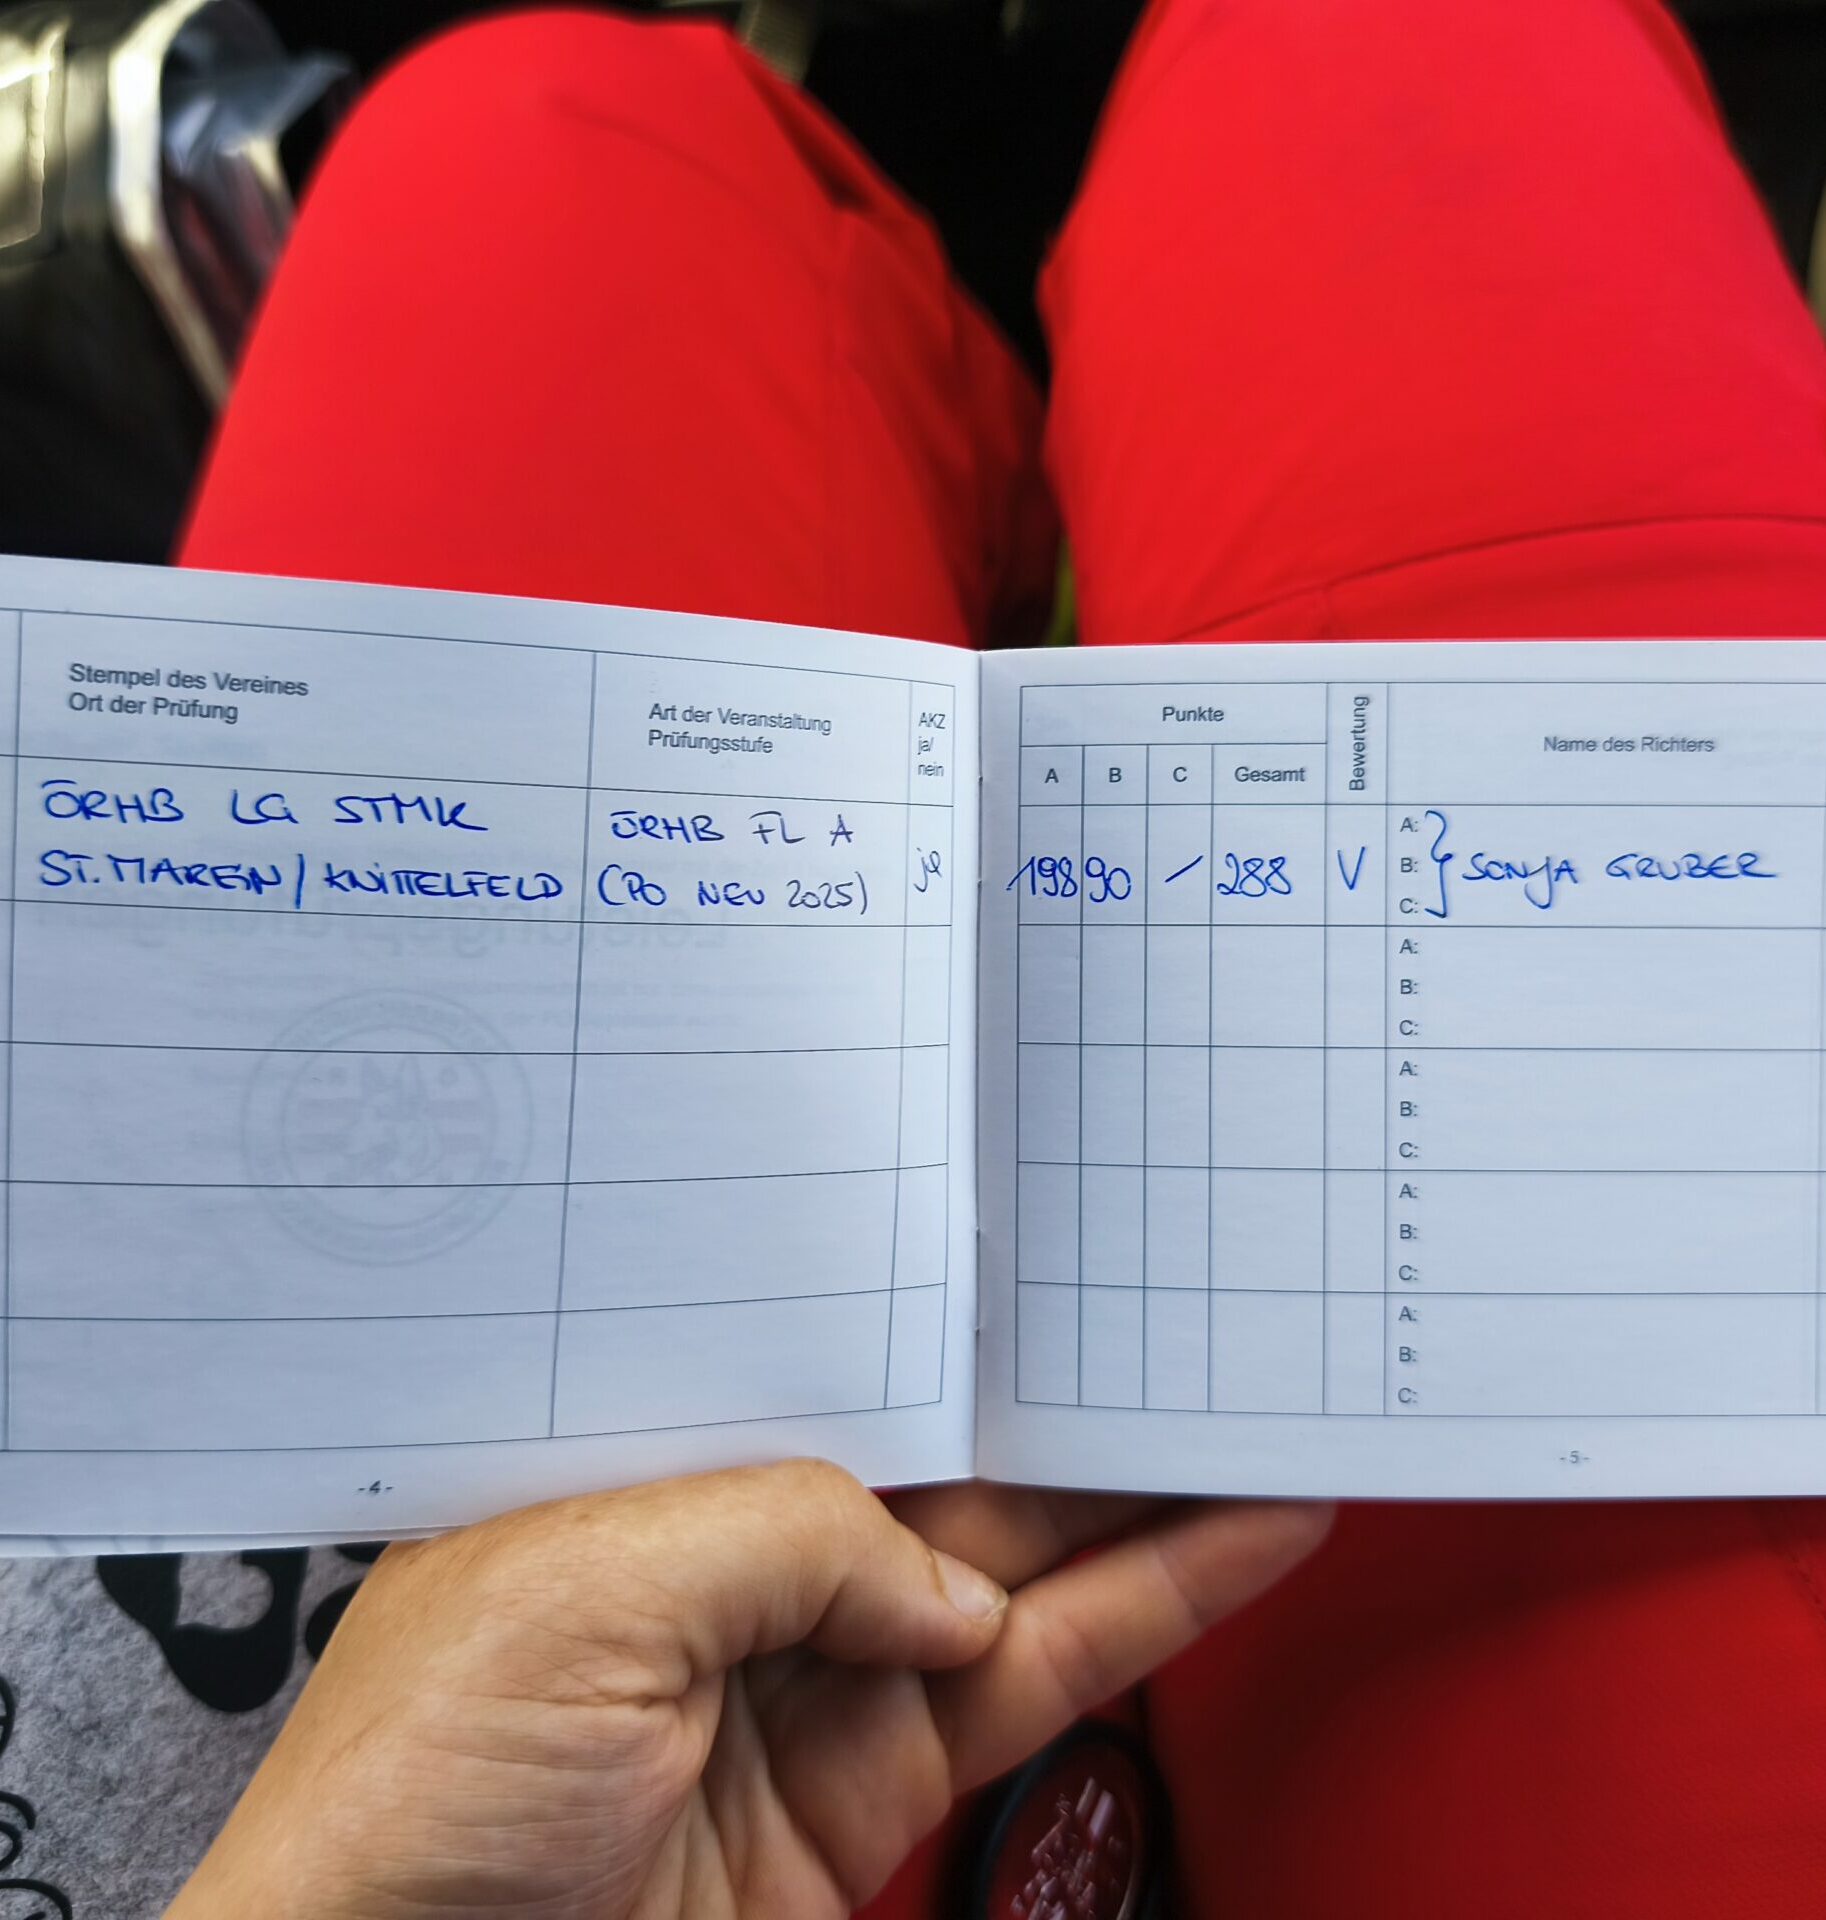 Stempel des Vereines
Ort der Prüfung
Art der Veranstaltung
Prüfungsstufe
AKZ
ja/
nein
ÖRHB LG STMK
ST. MAREIN / KNITTELFELD
ÖRHB FL A
(PO NEU 2025)
ja
- 4 -
Punkte
A B C Gesamt
Bewertung
Name des Richters
198 90 / 288 V
A:
B: SONJA GRUBER
C:
A:
B:
C:
A:
B:
C:
A:
B:
C:
A:
B:
C:
- 5 -